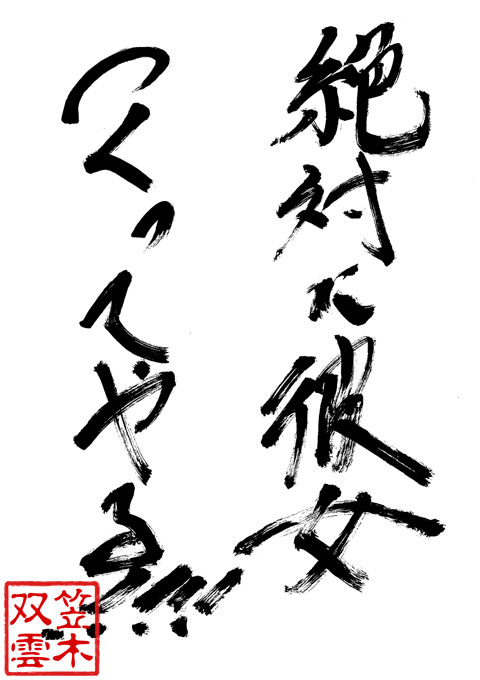 絶対に彼女
つくってやる!!!!
笠木
双雲